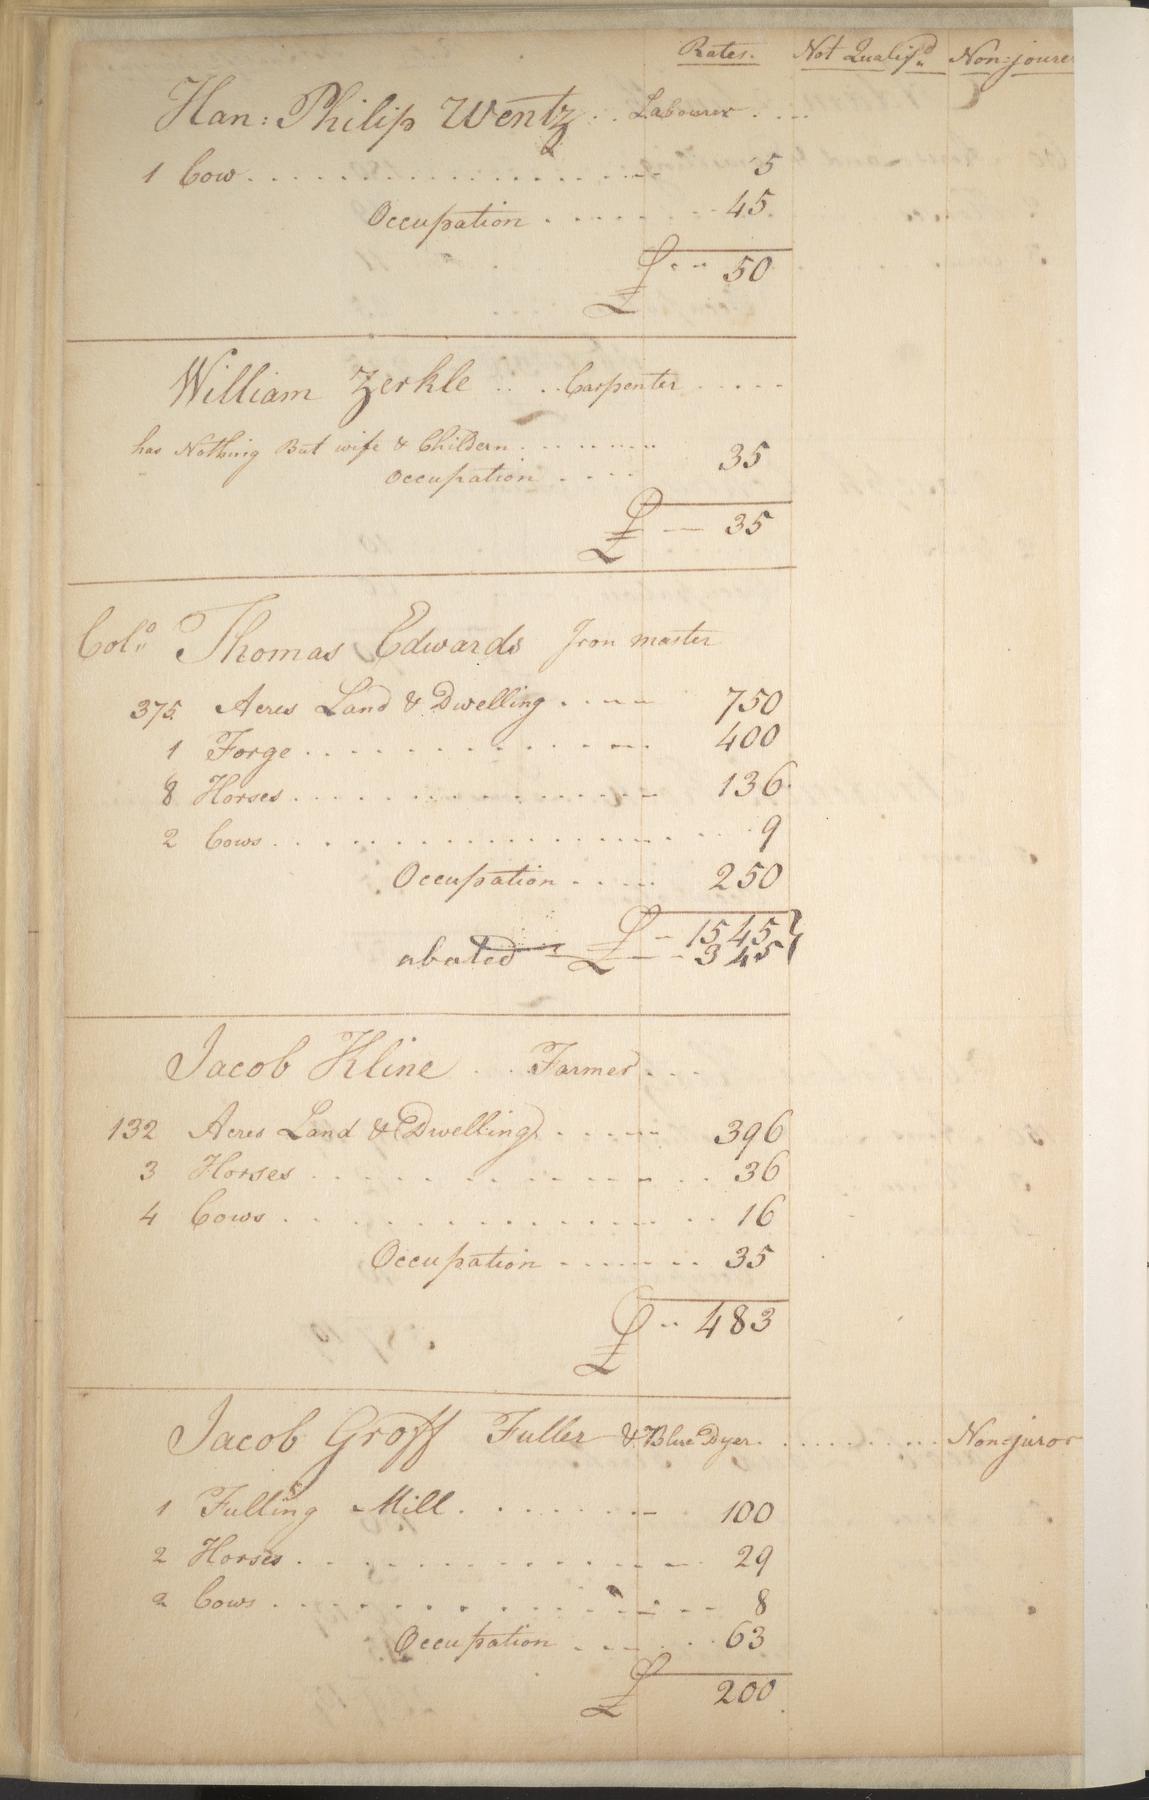 Rates. Not Qualif.d Non=jurer
Han: Philip Wentz .. Labourer ....
1 Cow 5
Occupation 45
£ 50
William Zerkle .. Carpenter .....
has Nothing But wife & Childern
Occupation 35
£ 35
Col.o Thomas Edwards Iron master
375 Acres Land & Dwelling 750
1 Forge 400
8 Horses 136
2 Cows 9
Occupation 250
£ 1545
abated 345
Jacob Kline .. Farmer ...
132 Acres Land & Dwelling 396
3 Horses 36
4 Cows 16
Occupation 35
£ 483
Jacob Groff Fuller & Blue Dyer. Non=juror
1 Fulling Mill 100
2 Horses 29
2 Cows 8
Occupation 63
£ 200